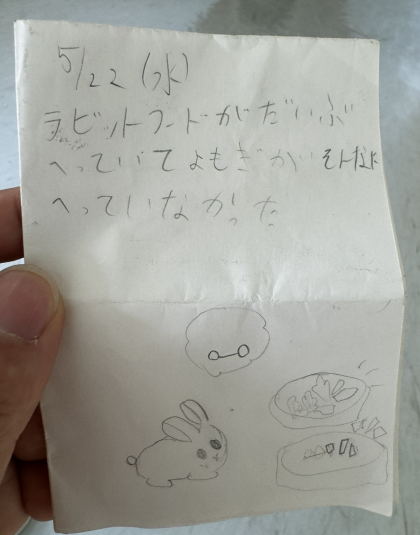 5/22(水)
ラビットフードがだいぶ
へっていてよもぎがそんなに
へっていなかった